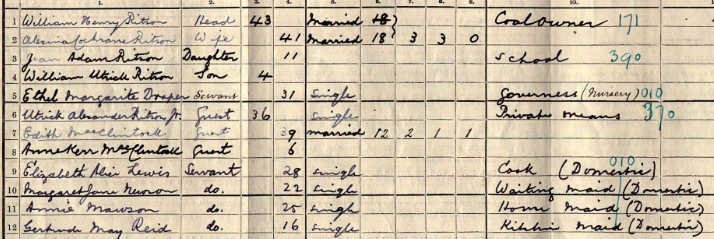 1. 2. 3. 4. 5. 6. 7. 8. 9. 10.
1 William Henry Ritson Head 43 Married 18 Coal Owner 171
2 Cochrane Ritson Wife 41 Married 18 3 3 0
3 Jean Adam Ritson Daughter 11 School 390
4 William Utrick Ritson Son 4
5 Ethel Margarite Draper Servant 31 Single Governess (Nursery) 010
6 Utrick Alexander Ritson Jr. Guest 36 Single Private means 370
7 Edith MacClintock Guest 39 Married 12 2 1 1
8 Anne Kerr MacClintock Guest 6
9 Elizabeth Lewis Servant 28 Single Cook (Domestic) 010
10 Margaret Jane do. 22 Single Waiting Maid (Domestic)
11 Annie Mawson do. 25 Single House Maid (Domestic)
12 Gertrude May Reid do. 16 Single Kitchin Maid (Domestic)